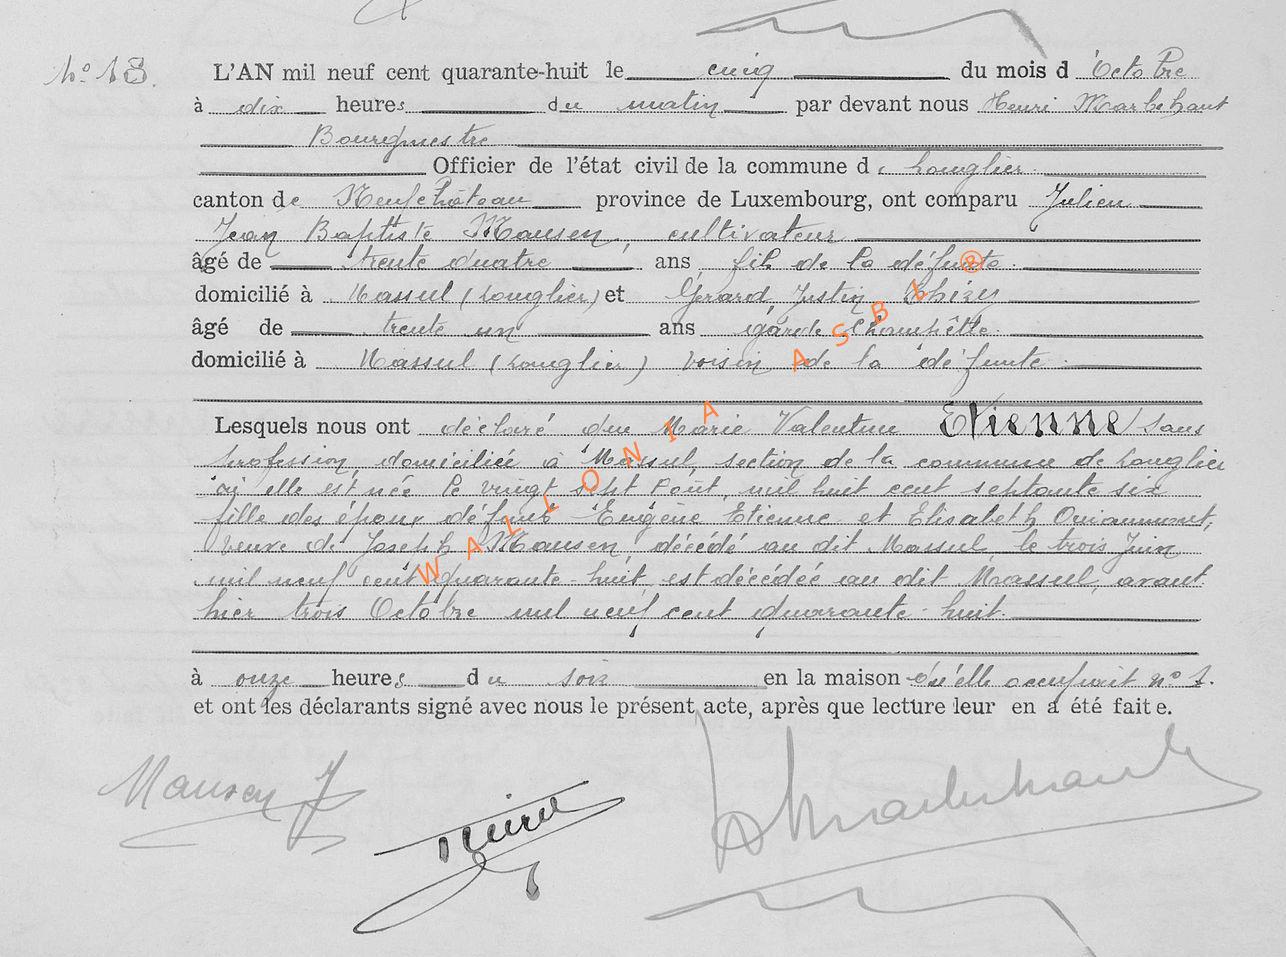 N° 18. L'AN mil neuf cent quarante-huit le cinq du mois d'Octobre
à dix heures du matin par devant nous Henri Marbehant
Bourgmestre
Officier de l'état civil de la commune de Longlier
canton de Neufchâteau province de Luxembourg, ont comparu Julien
Jean Baptiste Mausen, cultivateur
âgé de trente quatre ans, fils de la défunte.
domicilié à Massul (Longlier) et Gérard, Justin
âgé de trente un ans garde
domicilié à Massul (Longlier) voisin de la défunte.
Lesquels nous ont déclaré que Marie Valentine Etienne, sans
profession, domiciliée à Massul, section de la commune de Longlier
où elle est née le vingt sept Août, mil huit cent septante six
fille des époux défunts Eugène Etienne et Elisabeth
veuve de Joseph Mausen, décédé au dit Massul, le trois Juin
mil neuf cent quarante-huit, est décédée au dit Massul, avant
hier trois Octobre mil neuf cent quarante-huit.
à onze heures du soir en la maison qu'elle occupait n° 1.
et ont les déclarants signé avec nous le présent acte, après que lecture leur en a été faite.
Mausen J
WALLONIA ASBL ®